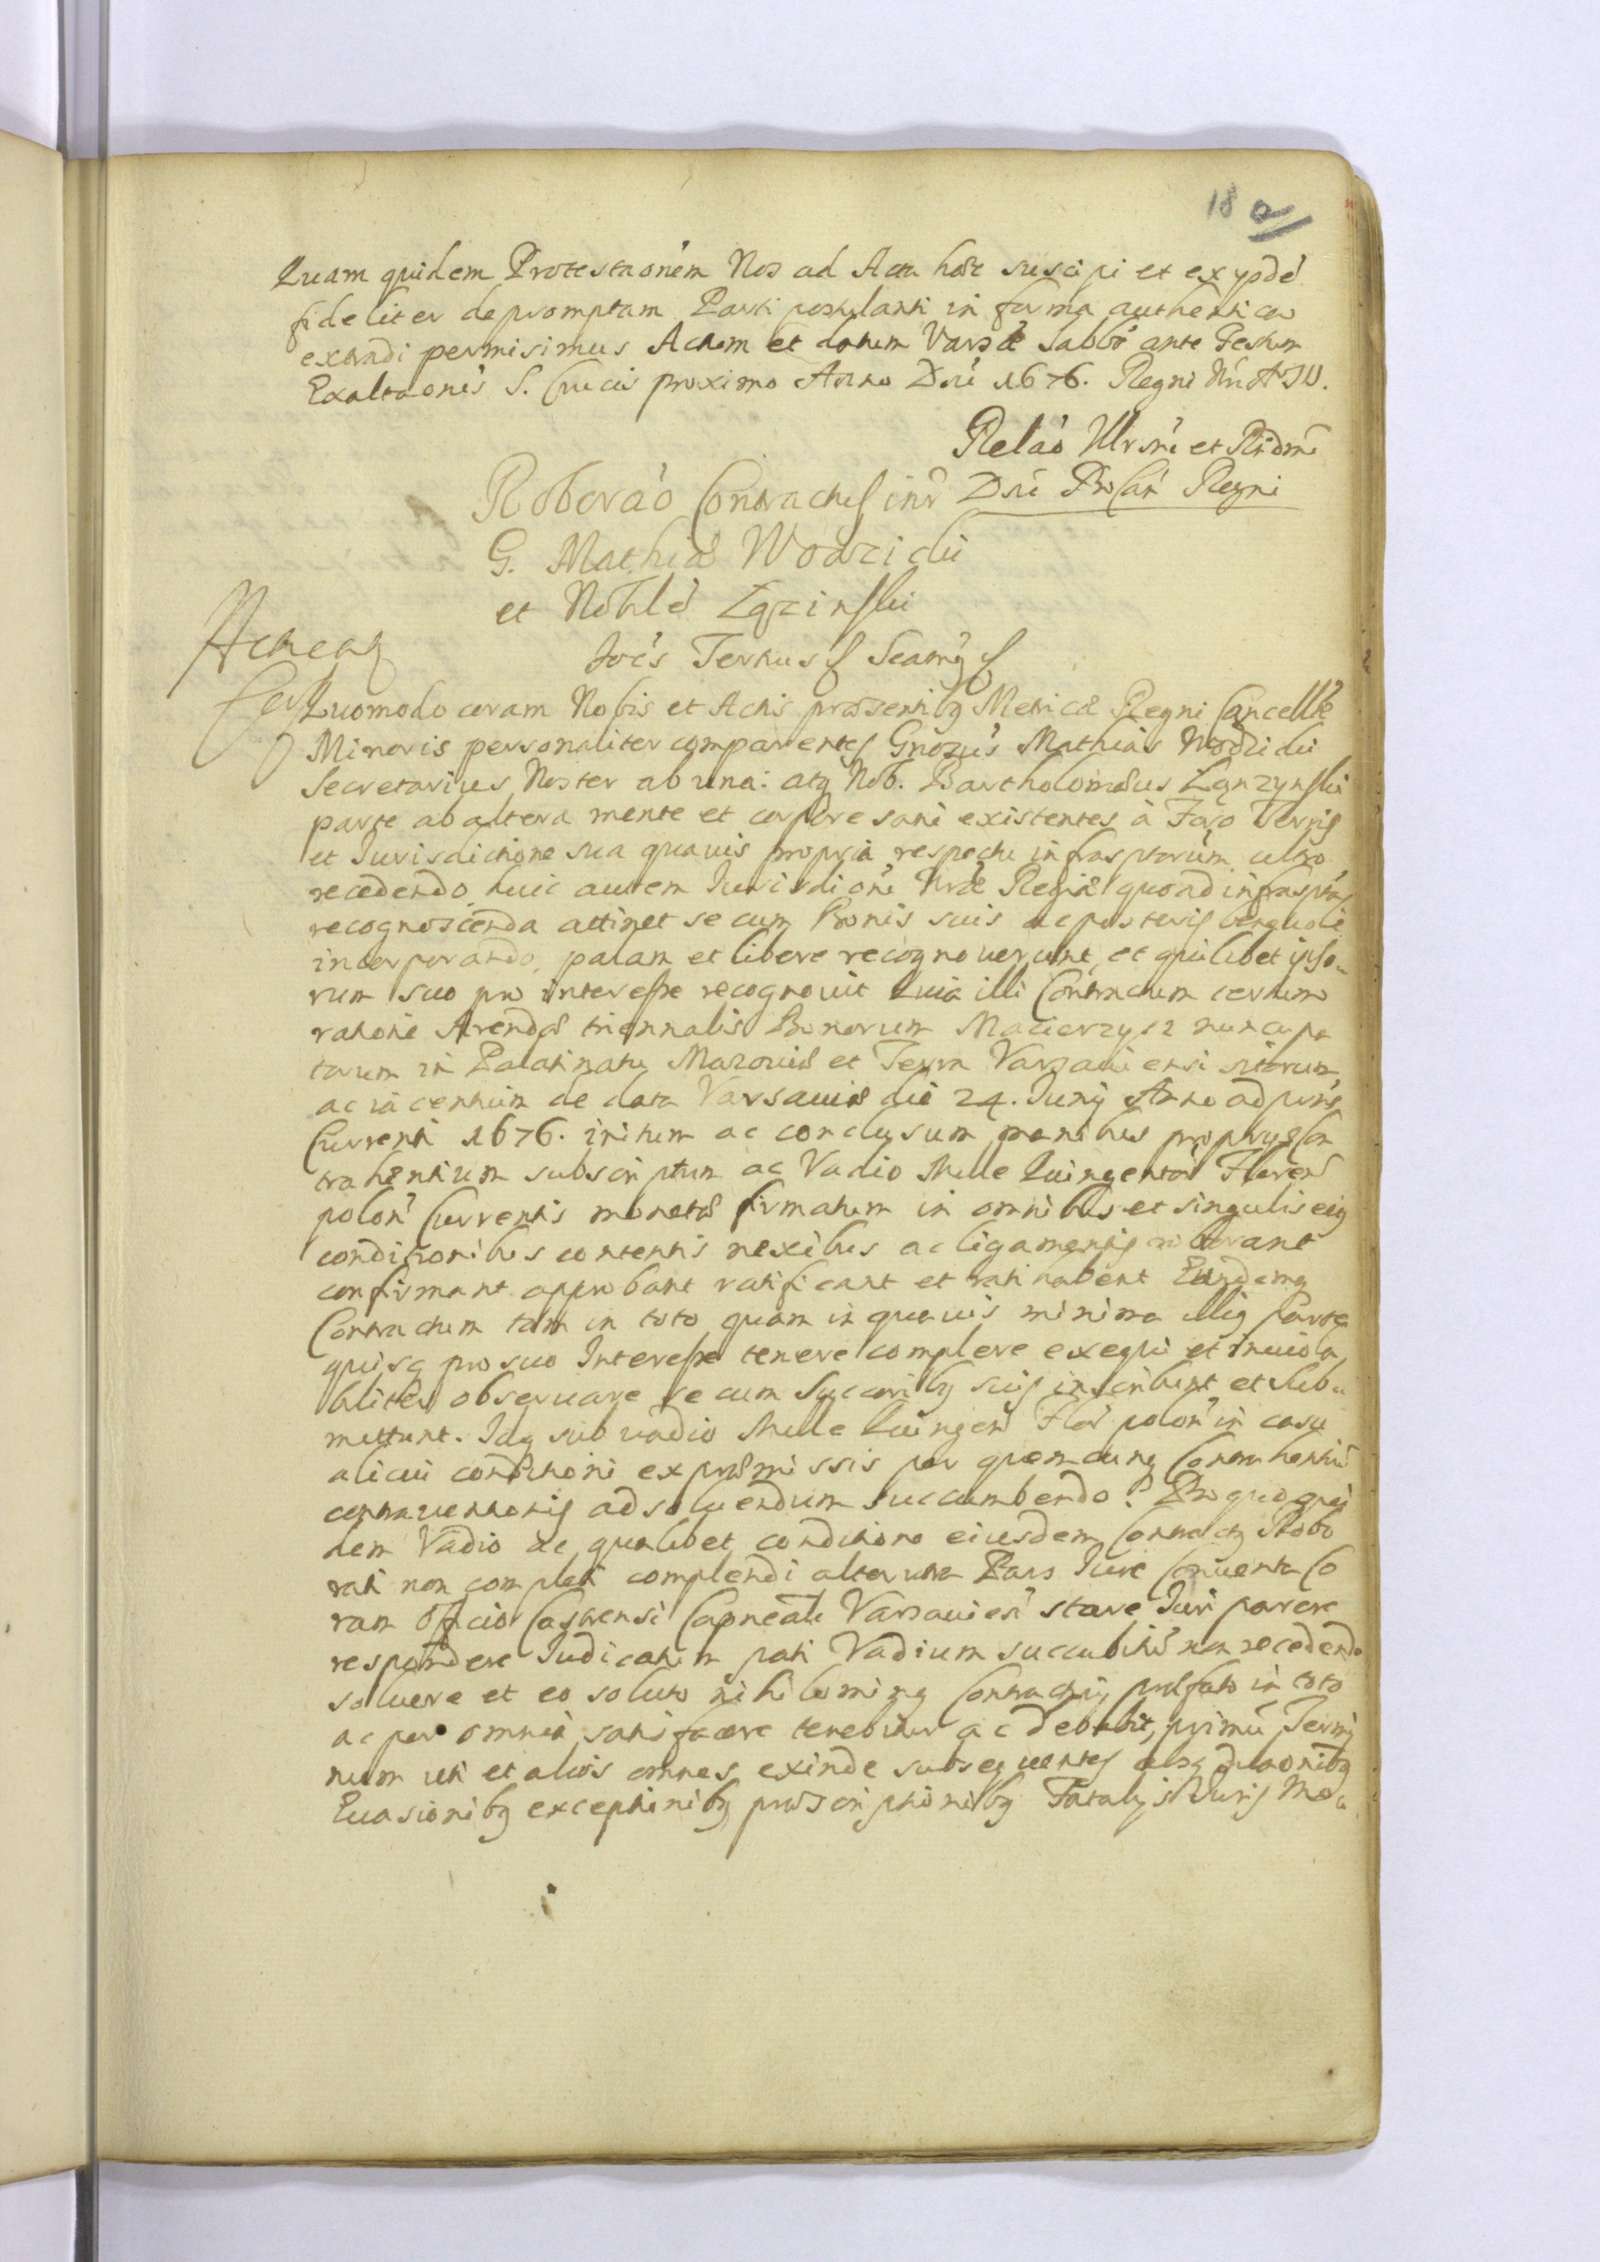 18 a
Quam quidem Protestaonem Nos ad Acta haec suscipi et ex ijsdē
fideliter depromptam Parti postulanti in forma authentica
extradi permisimus Actum et datum Varsae Sabbō ante Festum
Exaltaonis S. Crucis proximo Anno Dni 1676. Regni
Relaō Illrsmi et Rndmi
Dni ProCan Regni
Roboraō Contractus intr
G. Mathiae Wodzicki
et Nobilē Łązinski
Acticat
Quomodo coram Nobis et Actis praesentibq Metricae Regni Cancellae
Minoris personaliter comparentes Gnosus Mathias Wodzicki
Secretarius Noster ab una: atq Nob. Bartholomaeus Łanzynski
parte ab altera mente et corpore sani existentes à Foro Terris
et Iurisdictione sua quauis propria respectu infrasptorum ultro
recedendo, huic autem Iurisdioni Nrae Regiae quoad infraspta
recognoscenda attinet se cum Bonis suis ac posteris beneuole
incorporando, palam et libere recognouerunt, et quilibet ipso-
rum suo pro interesse recognouit Quia illi Contractum certum
ratione Arendae triennalis Bonorum Macierzysz nuncupa
torum in Palatinatu Mazouiae et Terra Varsauiensi sitorum
ac iacentium de data Varsauiae die 24. Iunij Anno ad praes
Currenti 1676. initum ac conclusum manibus proprijs Con
trahentium subscriptum ac Vadio Mille Quingentor Floren
polon Currentis monetae firmatum in omnibus et singulis eiq
conditionibus contentis nexibus ac ligamentis roborant
confirmant approbant ratificant et ratihabent Eundemq
Contractum tam in toto quam in quauis minima illiq Parte
quisq pro suo Interesse tenere complere exequi et inuiola
biliter obseruare se cum Succoribq suis inscribunt et sub-
mittunt. Idq sub vadio Mille Quingen Flor polon in casu
alicui conditioni ex praemissis per quemcunq Contrahentiū
contrauentionis ad soluendum succumbendo. Pro quo qui
dem Vadio ac qualibet conditione eiusdem Contractq Robo
rati non completi complendi alterutra Pars Iure Conuenta Co
ram Officio Castrensi Capneali Varsauien stare Iuri parere
respondere Iudicatum pati Vadium succubitū non recedendo
soluere et eo soluto nihilominq Contractui praefato in toto
ac per omnia satisfacere tenebitur ac debebit, primū Termi
num uti et alios omnes exinde subsequentes absq dilaonibq
Euasionibq exceptionibq praescriptionibq Fatalijs Iuris Mo-